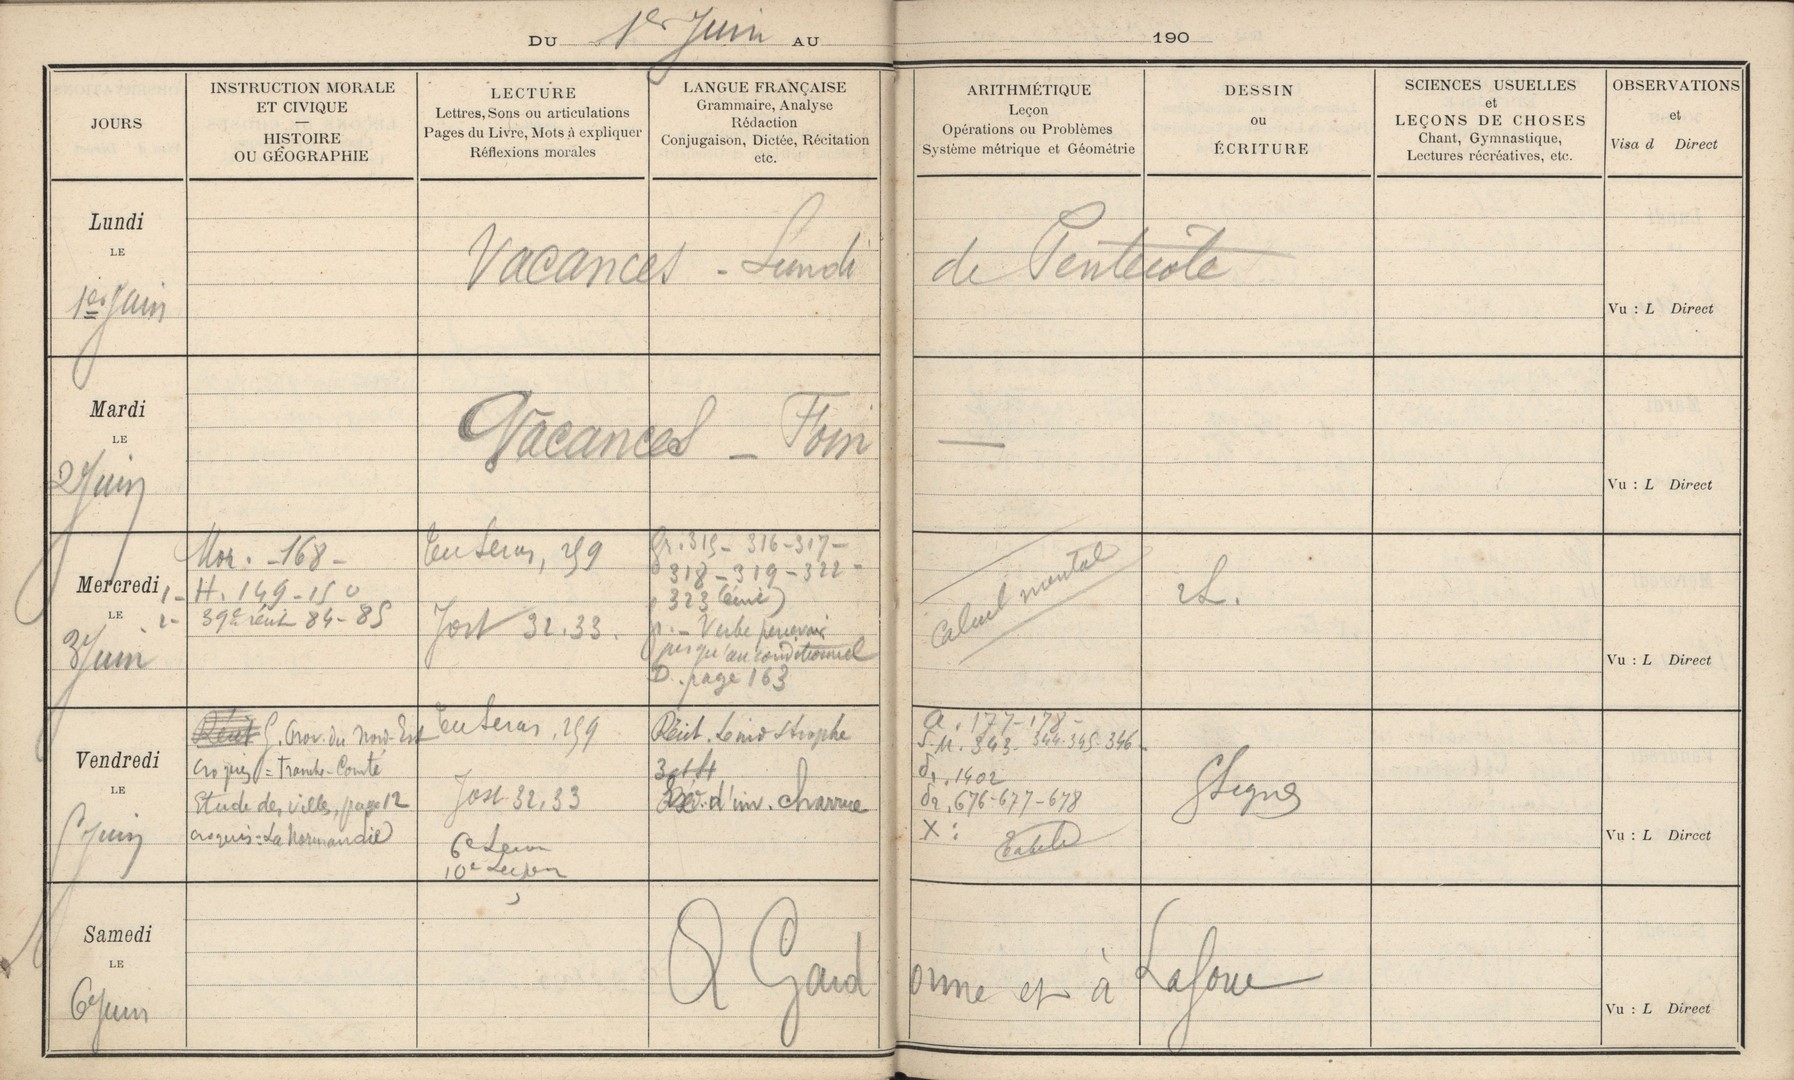 DU 1er Juin AU 190
JOURS
INSTRUCTION MORALE
ET CIVIQUE
—
HISTOIRE
OU GÉOGRAPHIE
LECTURE
Lettres, Sons ou articulations
Pages du Livre, Mots à expliquer
Réflexions morales
LANGUE FRANÇAISE
Grammaire, Analyse
Rédaction
Conjugaison, Dictée, Récitation
etc.
ARITHMÉTIQUE
Leçon
Opérations ou Problèmes
Système métrique et Géométrie
DESSIN
ou
ÉCRITURE
SCIENCES USUELLES
et
LEÇONS DE CHOSES
Chant, Gymnastique,
Lectures récréatives, etc.
OBSERVATIONS
et
Visa d Direct
Lundi
LE
1er Juin
Vacances - Lundi de Pentecôte
Vu : L Direct
Mardi
LE
2 Juin
Vacances — Foin —
Vu : L Direct
Mercredi
LE
3 Juin
Mor. - 168 -
1- H. 149 - 150
2- 39e récit 84 - 85
159
Jost 32.33.
Gr. 315 - 316 - 317 -
318 - 319 - 322 -
323
Verbe percevoir
jusqu'au conditionnel
D. page 163
Calcul mental
2L.
Vu : L Direct
Vendredi
LE
Juin
G. Prov. du Nord-Est
croquis = Franche-Comté
Etude des villes, page 12
croquis = La Normandie
159
Jost 32, 33
6e Leçon
10e Leçon
Récit. strophe
3 et 4
d'inv. charrue
A. 177 - 178 -
S.M. 343 - 344 - 345 - 346 -
D1. 1402
D2. 676 - 677 - 678
X :
Vu : L Direct
Samedi
LE
6 Juin
A Gardonne et à
Vu : L Direct